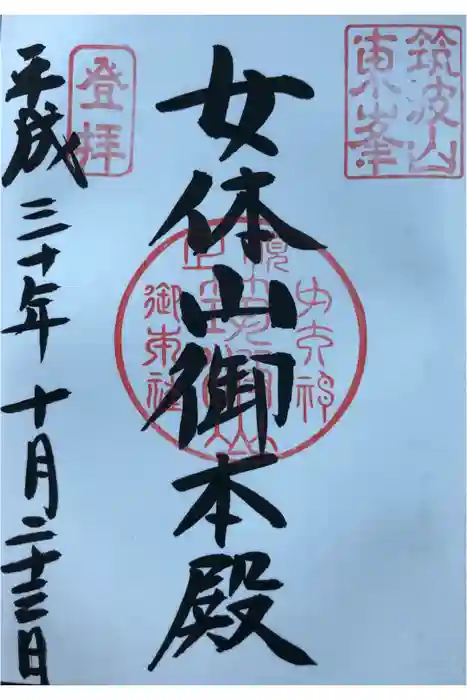 筑波山
東峯
女体山御本殿
登拝
平成三十年十月二十三日